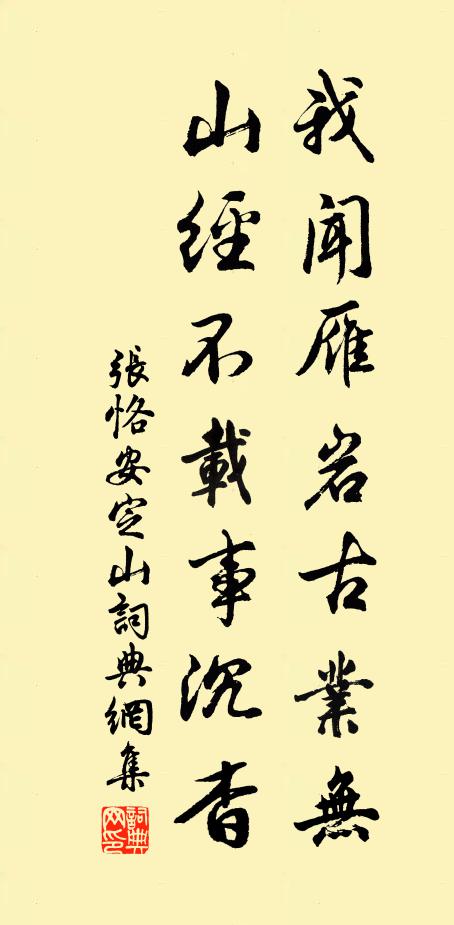 我聞雁岩古業無
山經不載事沉杳
張恪安定山詞典網集
詞典网印